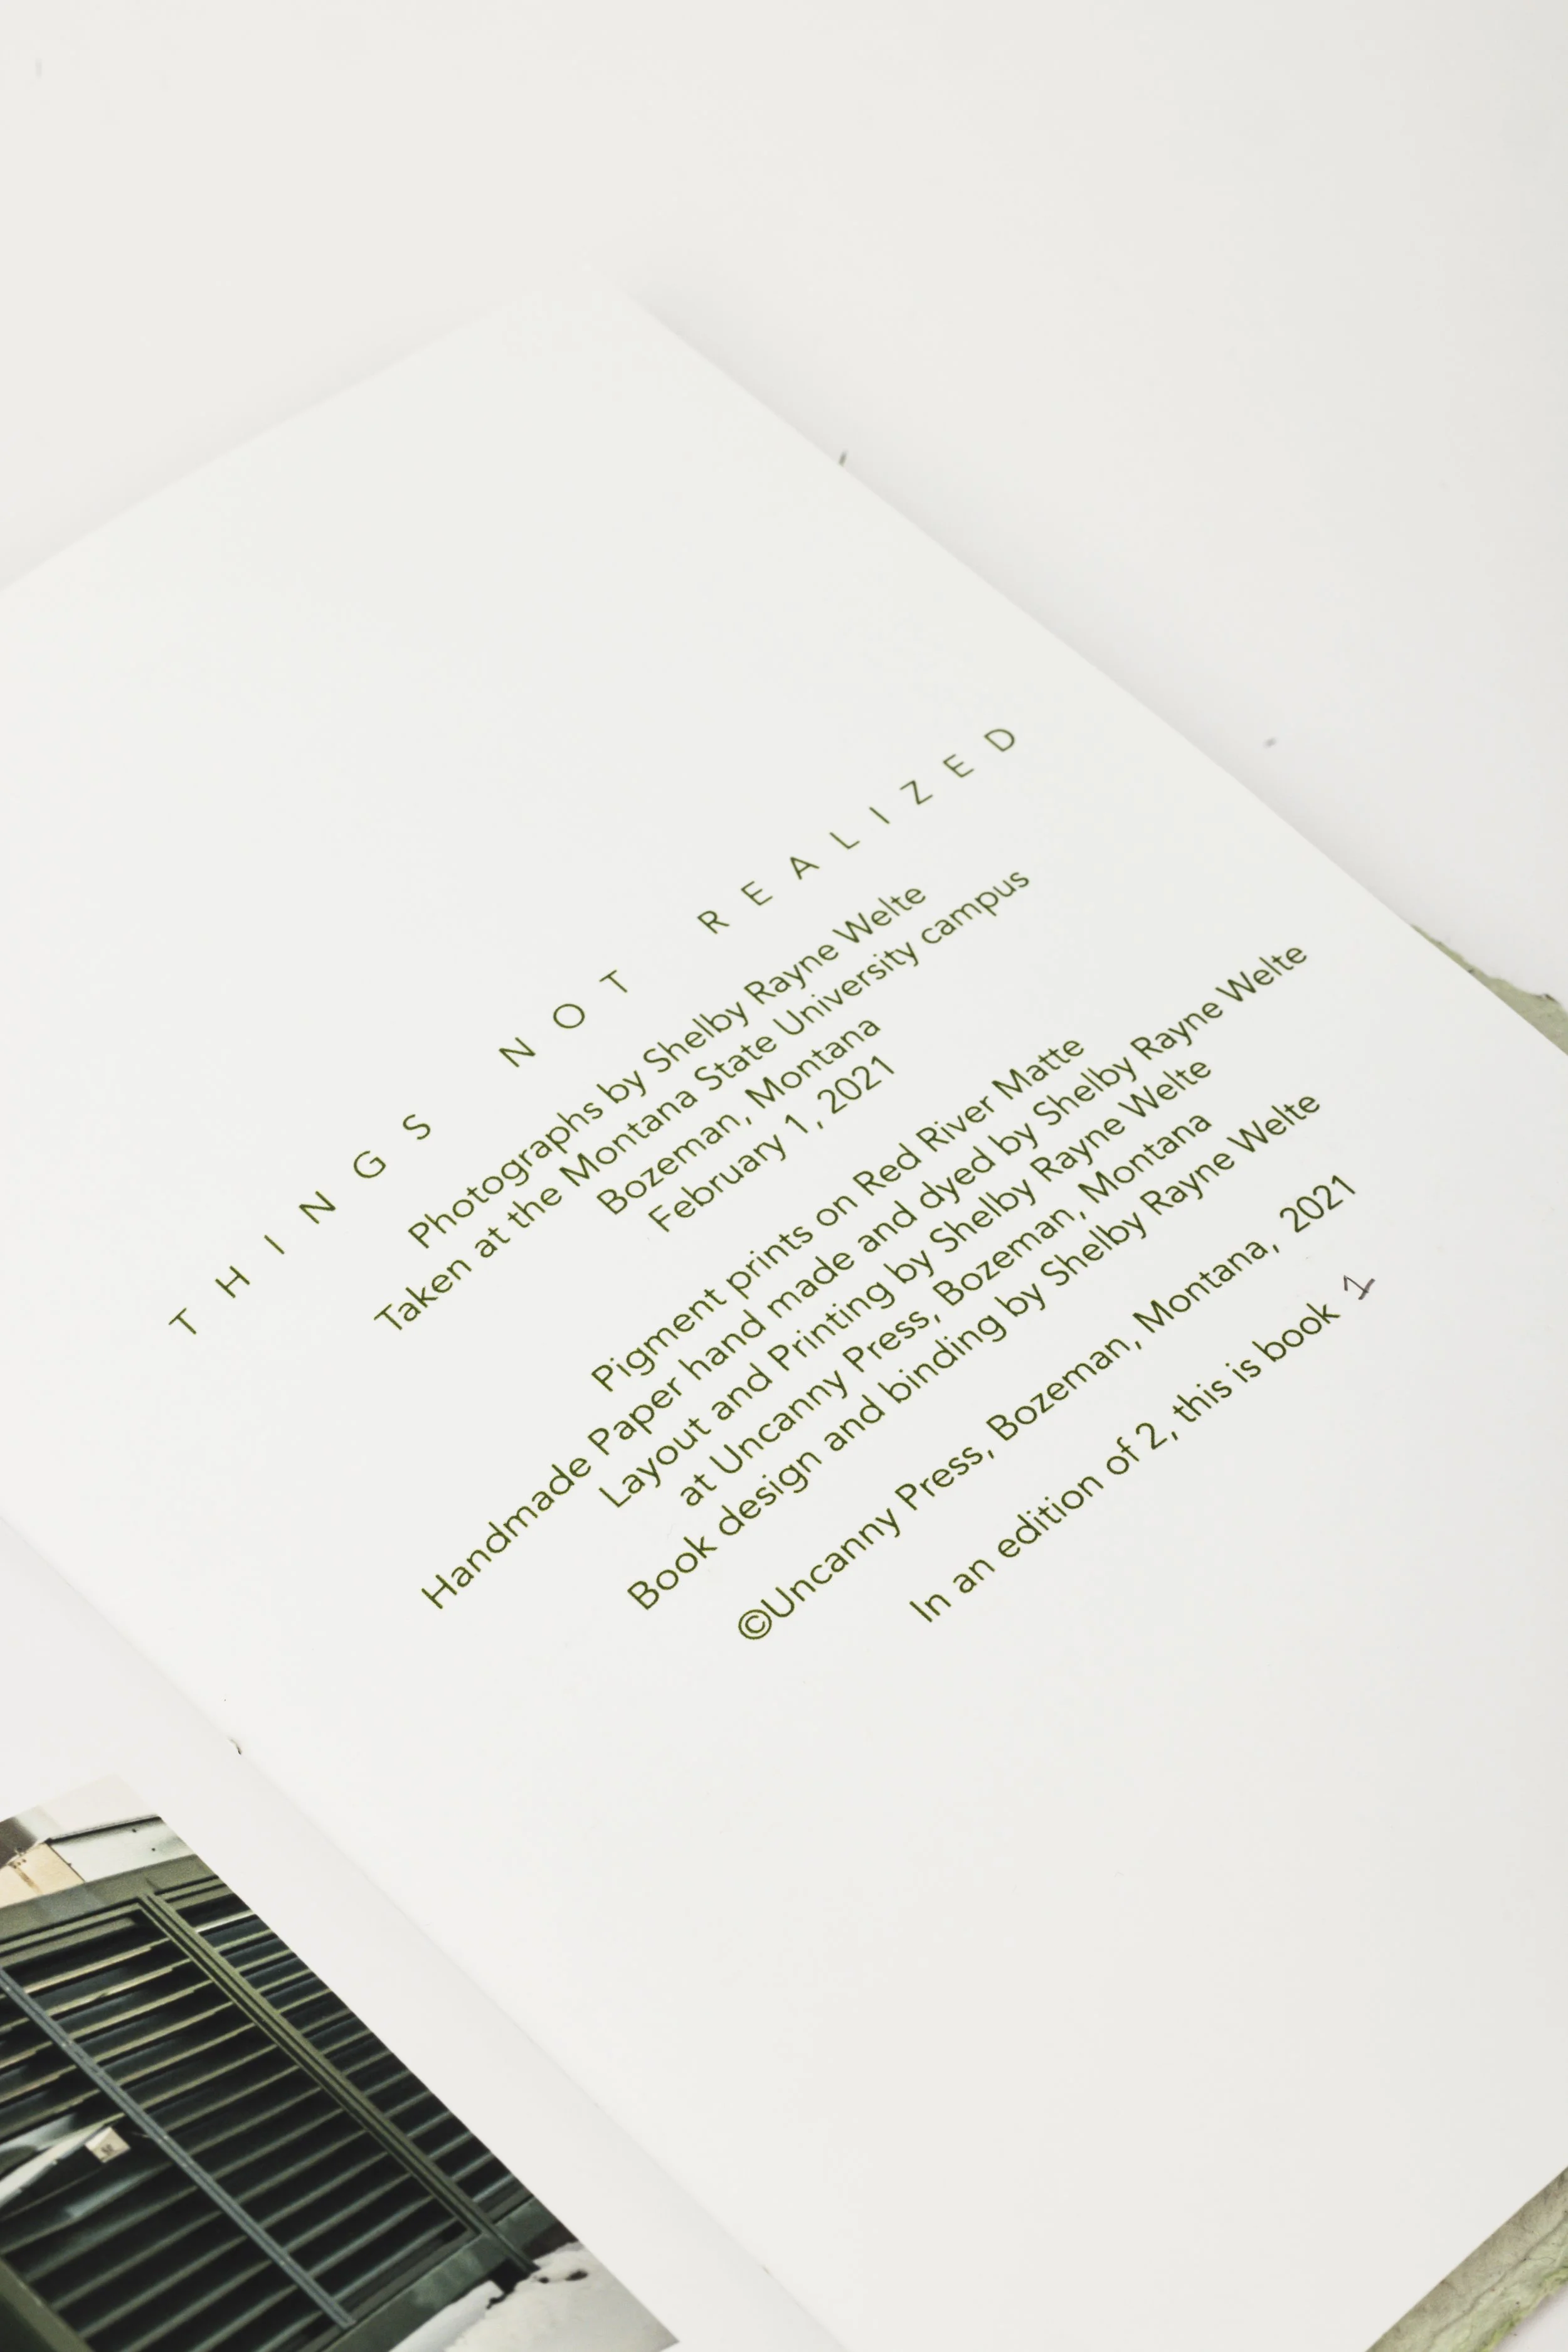 THINGS NOT REALIZED
Photographs by Shelby Rayne Welte
Taken at the Montana State University campus
Bozeman, Montana
February 1, 2021
Pigment prints on Red River Matte
Handmade Paper hand made and dyed by Shelby Rayne Welte
Layout and Printing by Shelby Rayne Welte
at Uncanny Press, Bozeman, Montana
Book design and binding by Shelby Rayne Welte
©Uncanny Press, Bozeman, Montana, 2021
In an edition of 2, this is book 1